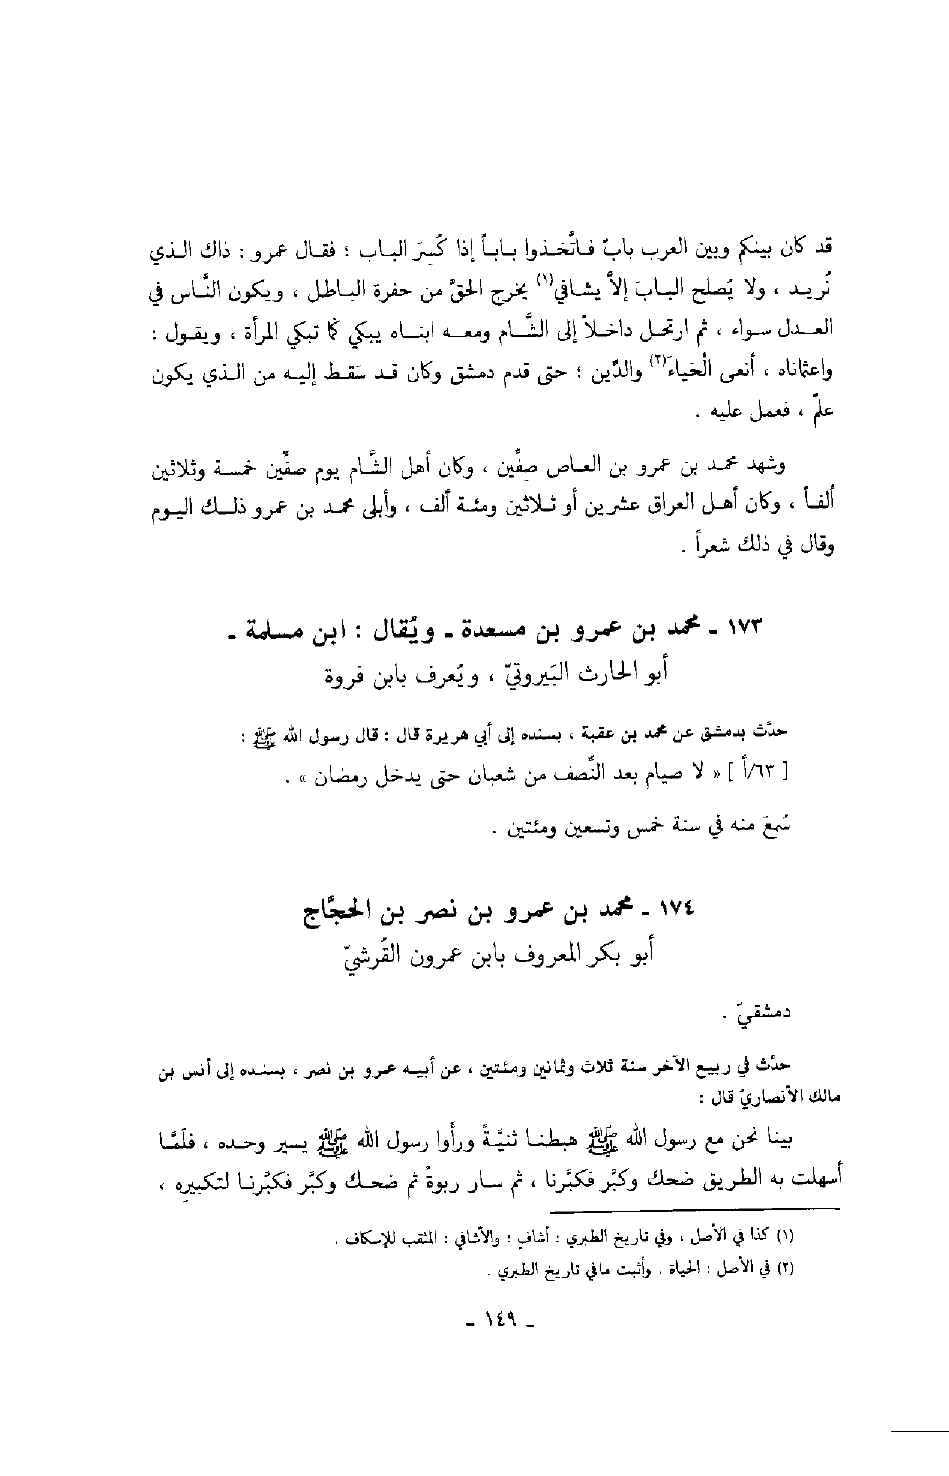 قد كان بينكم وبين العرب بابٌ فاتَّخذوا باباً إذا كُسِرَ الباب ؛ فقال عمرو : ذاك الذي
نُريد ، ولا يُصلح البابَ إلاّ يشافي(١) يخرج الحقَّ من حفرة الباطل ، ويكون النَّاس في
العدل سواء ، ثم ارتحل داخلاً إلى الشَّام ومعه ابناه يبكي كما تبكي المرأة ، ويقول :
واعثماناه ، أنعى الْحَياءَ(٢) والدِّين ؛ حتى قدم دمشق وكان قد سَقط إليه من الذي يكون
علمٌ ، فعمل عليه .
وشهد محمد بن عمرو بن العاص صِفِّين ، وكان أهل الشَّام يوم صفِّين خمسة وثلاثين
ألفاً ، وكان أهل العراق عشرين أو ثلاثين ومئة ألف ، وأبلى محمد بن عمرو ذلك اليوم
وقال في ذلك شعراً .
١٧٣ ـ محمد بن عمرو بن مسعدة ـ ويُقال : ابن مسلمة ـ
أبو الحارث البَيروتيّ ، ويُعرف بابن فروة
حدَّث بدمشق عن محمد بن عقبة ، بسنده إلى أبي هريرة قال : قال رسول الله ﷺ :
[ ٦٣/أ ] « لا صيام بعد النَّصف من شعبان حتى يدخل رمضان » .
سُمِعَ منه في سنة خمس وتسعين ومئتين .
١٧٤ ـ محمد بن عمرو بن نصر بن الحجَّاج
أبو بكر المعروف بابن عمرون القُرشيّ
دمشقيّ .
حدَّث في ربيع الآخر سنة ثلاث وثمانين ومئتين ، عن أبيه عمرو بن نصر ، بسنده إلى أنس بن
مالك الأنصاريّ قال :
بينا نحن مع رسول الله ﷺ هبطنا ثنيَّةً ورأوا رسول الله ﷺ يسير وحده ، فلَمَّا
أسهلت به الطريق ضحك وكبَّر فكبَّرنا ، ثم سار ربوةً ثم ضحك وكبَّر فكبَّرنا لتكبيره ،
(١) كذا في الأصل ، وفي تاريخ الطبري : أشافٍ ؛ والأشافي : المثقب للإسكاف .
(٢) في الأصل : الحياة . وأثبت مافي تاريخ الطبري .
ـ ١٤٩ ـ